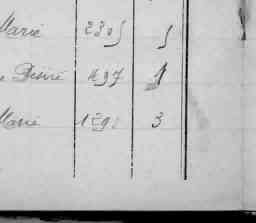 Marie 2305 5
Désiré 497 1
Marie 1291 3